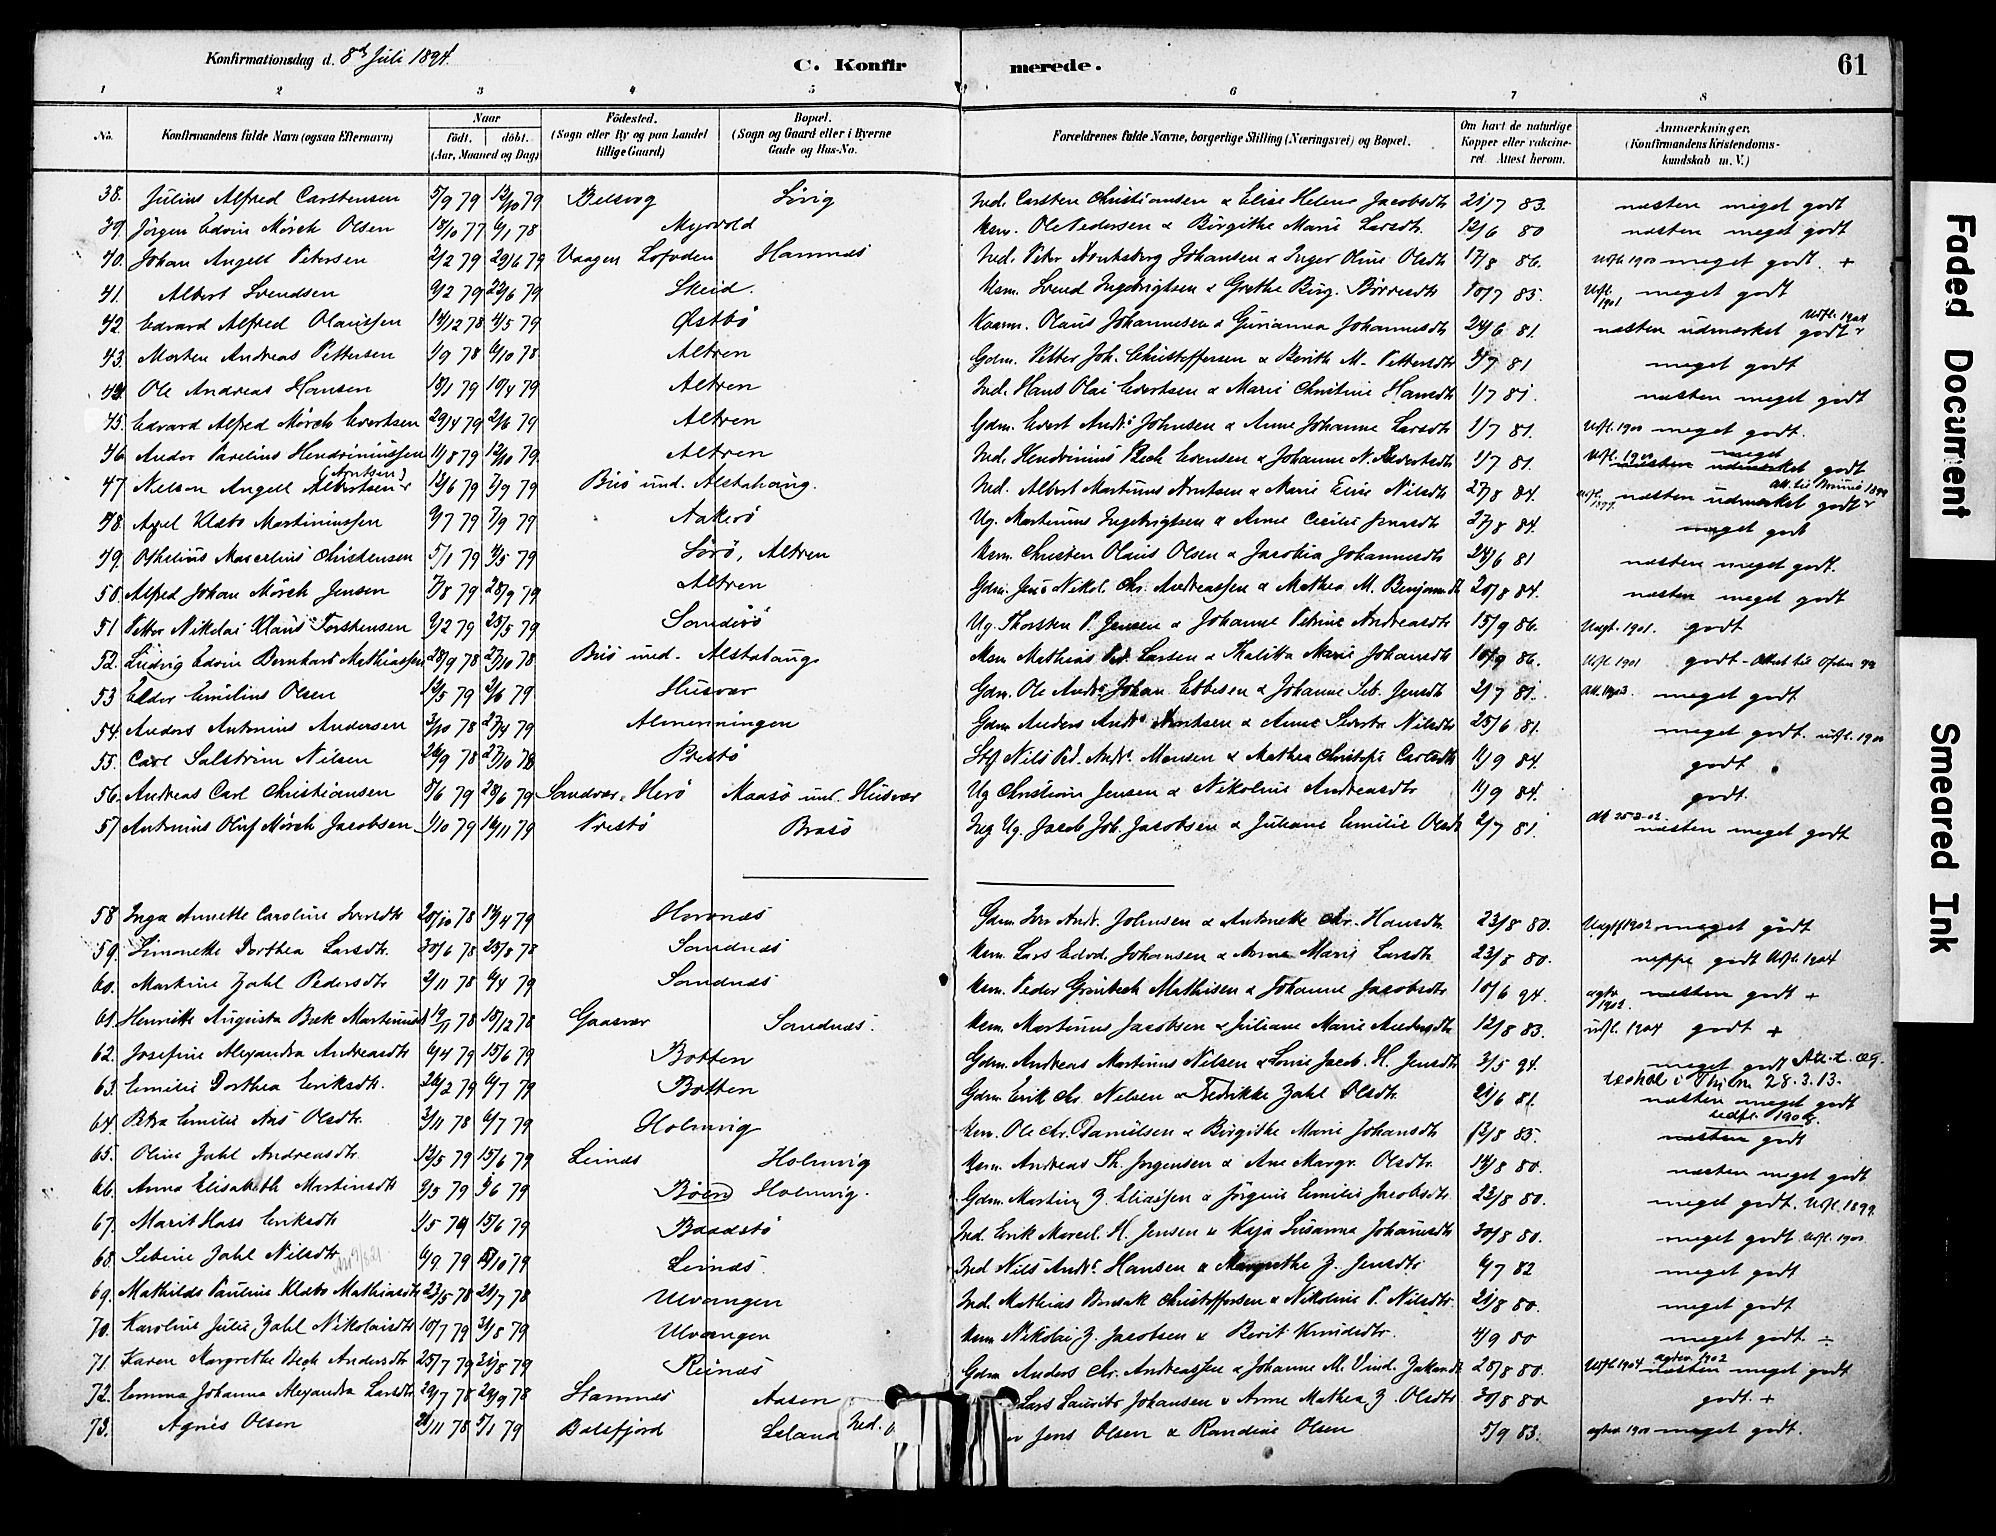 Konfirmationsdag d. 8de Juli 1894.
C. Konfirmerede.
61
1 2 3 4 5 6 7 8
No. Konfirmandens fulde Navn (ogsaa Efternavn) Naar födt. döbt. (Aar, Maaned og Dag) Födested. (Sogn eller By og paa Landet tillige Gaard) Bopæl. (Sogn og Gaard eller i Byerne Gade og Hus-No. Forældrenes fulde Navne, borgerlige Stilling (Næringsvei) og Bopæl. Om havt de naturlige Kopper eller vakcineret. Attest herom. Anmærkninger. (Konfirmandens Kristendomskundskab m. V.)
38. Julius Alfred Carstensen 5/9 79 12/10 79 Belsvog Sövig Ind. Carsten Christiansen & Elise Helene Jacobsdtr 21/7 83. næsten meget godt
39. Jörgen Edvin Mörch Olsen 18/10 77 6/1 78 Myrvold Ksm. Ole Pedersen & Birgithe Marie Larsdtr. 12/6 80 næsten meget godt
40. Johan Angell Petersen 2/2 79 29/6 79 Vaagen Lofoden Hamnes Ind. Peter Johansen & Inger Oline Olsdtr 17/8 86. Utfl. 1900 meget godt. +
41. Albert Svendsen 9/2 79 22/6 79 Skeid. Ksm. Svend Ingebrigtsen & Grethe Birg. 10/7 85. Utfl. 1901 meget godt
42. Edvard Alfred Olaussen 14/12 78 4/5 79 Østbö Olaus Johannesen & Gurianna Johannesdtr 24/6 81. næsten udmærket godt Utfl. 1901
43. Morten Andreas Pettersen 1/9 78 6/10 78 Altren Gdm. Petter Joh. Christoffersen & Berith M. Pettersdtr 9/7 81 meget godt
44. Ole Andreas Hansen 18/1 79 10/4 79 Altren Ind. Hans Olai Evertsen & Marie Christine Hansdtr 1/7 81. næsten meget godt
45. Edvard Alfred Mörch Evertsen 29/4 79 2/6 79 Altren Gdm. Evert Andr. Johnsen & Anne Johanne Larsdtr 1/7 81. Utfl. 1900 meget godt.
46. Andor Parelius Hendriniussen 11/8 79 12/10 79. Altren Ind. Hendrinius Bech Evensen & Johanne N. 1/7 81. Utfl. 1900 næsten udmærket godt meget
47. Nelson Angell Albertsen (Arntsen) 12/6 79 7/9 79 Brö und. Alstahoug. Ind. Albert Martinus Arntsen & Marie Elise Nilsdtr 27/8 84. næsten udmærket godt Att. til 1899
48. Axel Klæbo Martiniussen 9/7 79 7/9 79 Aakerö Ug. Martinus Ingebrigtsen & Anne Cecilie Jonasdtr 27/8 84. meget godt
49. Othelius Marcelius Christensen 5/1 79 4/5 79 Sörö, Altren Ksm. Christen Olaus Olsen & Jacobia Johannesdtr 24/6 81 næsten meget godt.
50. Alfred Johan Mörch Jensen 7/8 79 28/9 79 Altren Gdm. Jens Nikol. Chr. Andreassen & Mathea M. Benjamdtr 20/8 84. næsten meget godt
51 Petter Nikolai Klaus Torstensen 9/12 79 25/5 79 Sanderö Ug. Thorsten P. Jensen & Johanne Petrine Andreasdtr 15/9 86. Uagt. 1901. godt
52. Ludvig Edvin Bernhard Mathiassen 28/9 78 27/10 78. Brö und. Alstahaug Ksm Mathias Ped. Larsen & Kalitta Marie Johansdtr 10/9 86. Utfl 1901 godt - Attest til Ofoten
53 Elder Emilius Olsen 12/5 79 2/6 79 Husvær Gdm. Ole Andr. Johan Ebbesen & Johanne Seb. Jensdtr 2/7 81. Att. 1903. meget godt
54. Anders Antonius Andersen 3/10 78 27/4 79 Almenningen Gdm Anders Andr. Arntsen & Anne Nilsdtr 25/6 81. meget godt. utfl. 1900
55. Carl Salstrim Nilsen 26/9 78 27/10 78 Prestö Nils Ped. Andr. Monsen & Mathea Christofa Carlsdtr 11/9 84. godt
56. Andreas Carl Christiansen 8/6 79 28/6 79 Sandvær, Herö Maasö und. Husvær Ug Christian Jensen & Nikoline Andreasdtr 11/9 84. godt.
57 Antonius Oluf Mörch Jacobsen 1/10 79 16/11 79 Prestö Brasö Ug. Jacob Joh. Jacobsen & Juliane Emilie Olsdtr 2/7 81. Att 25-2-02. næsten meget godt
58 Inga Annette Caroline Iversdtr 20/10 78 14/4 79 Hornnes Gdm. Iver Andr. Johnsen & Antonette Chr. Hansdtr. 23/8 80. Uagtf 1902 meget godt
59. Simonette Dorthea Larsdtr. 30/6 78 25/8 78 Sandnes Ksm. Lars Edvd. Johansen & Anne Marie Larsdtr 23/8 80. neppe godt Utfl. 1904
60. Martine Zahl Pedersdtr 2/11 78 6/4 79 Sandnes Ksm. Peder Grönbech Mathisen & Johanne Jacobsdtr 10/6 94. 1902. næsten godt +
61. Henrikke Augusta Bæk Martinusd 19/11 78 18/12 78 Gaasvær Sandnes. Ksm. Martinus Jacobsen & Juliane Marie Andersdtr 12/8 83. utfl. 1904 godt +
62. Josefine Alexandra Andreasdtr 6/4 79 15/6 79 Botten Gdm. Andreas Martinus Nilsen & Lovise Jacob. H. Jensdtr 3/5 94. meget godt Att. t. og.
63. Emilie Dorthea Eriksdtr. 26/2 79 6/7 79 Botten Gdm. Erik Chr. Nilsen & Fredrikke Zahl Olsdtr. 21/6 81. i Thjem 28.3.13. næsten meget godt
64. Petra Emilie Olsdtr. 3/11 78 6/7 79 Holmvig Ksm. Ole Chr. Danielsen & Birgithe Marie Johansdtr 13/8 85. Udfl. 1908. næsten godt
65. Oline Zahl Andreasdtr. 12/5 79 15/6 79 Leines Holmvig Ksm. Andreas Th. Jörgensen & Ane Margr. Olsdtr. 14/8 80. næsten meget godt
66. Anna Elisabeth Martinsdtr 9/5 79 5/6 79 Böen Holmvig. Gdm. Martin Z. Eliassen & Jörgine Emilie Jacobsdtr 23/8 80. meget godt. Utfl. 1899.
67. Marit Hass Eriksdtr 1/5 79 15/6 79 Baadstö Ind. Erik Marcel. H. Jensen & Kaja Susanna Johansdtr 30/8 80. meget godt Utfl. 1901
68. Sebine Zahl Nilsdtr 6/9 79 13/10 79 Leines. Ind Nils Andr. Hansen & Margrethe Z. Jensdtr 4/7 82 meget godt
69. Mathilde Pauline Klæbo Mathiasdtr 23/5 78 28/7 78 Ulvangen Ind. Mathias Christoffersen & Nikoline P. Nilsdtr 21/8 80. meget godt
70. Karoline Julie Zahl Nikolaisdtr 10/7 79 31/8 79 Ulvangen Ksm Nikolai Z. Jacobsen & Berit Knudsdtr. 4/9 80 meget godt ÷
71. Karen Margrethe Bech Andersdtr 25/7 79 31/8 79 Reines Gdm Anders Chr. Andreassen & Johanne M. Vind. 28/8 80. Utfl. 1904 1902 næsten meget godt
72. Emma Johanna Alexandra Larsdtr 29/7 78 29/9 78 Stamnes Aasen Lars Laurits Johansen & Anne Mathea Z. Olsdtr 30/8 80 godt. +
73. Agnes Olsen 21/11 78 5/1 79 Balsfjord Leland Ind. Jens Olsen & Randine Olsen 5/9 83. 1901 meget godt.
Faded Document
Smeared Ink